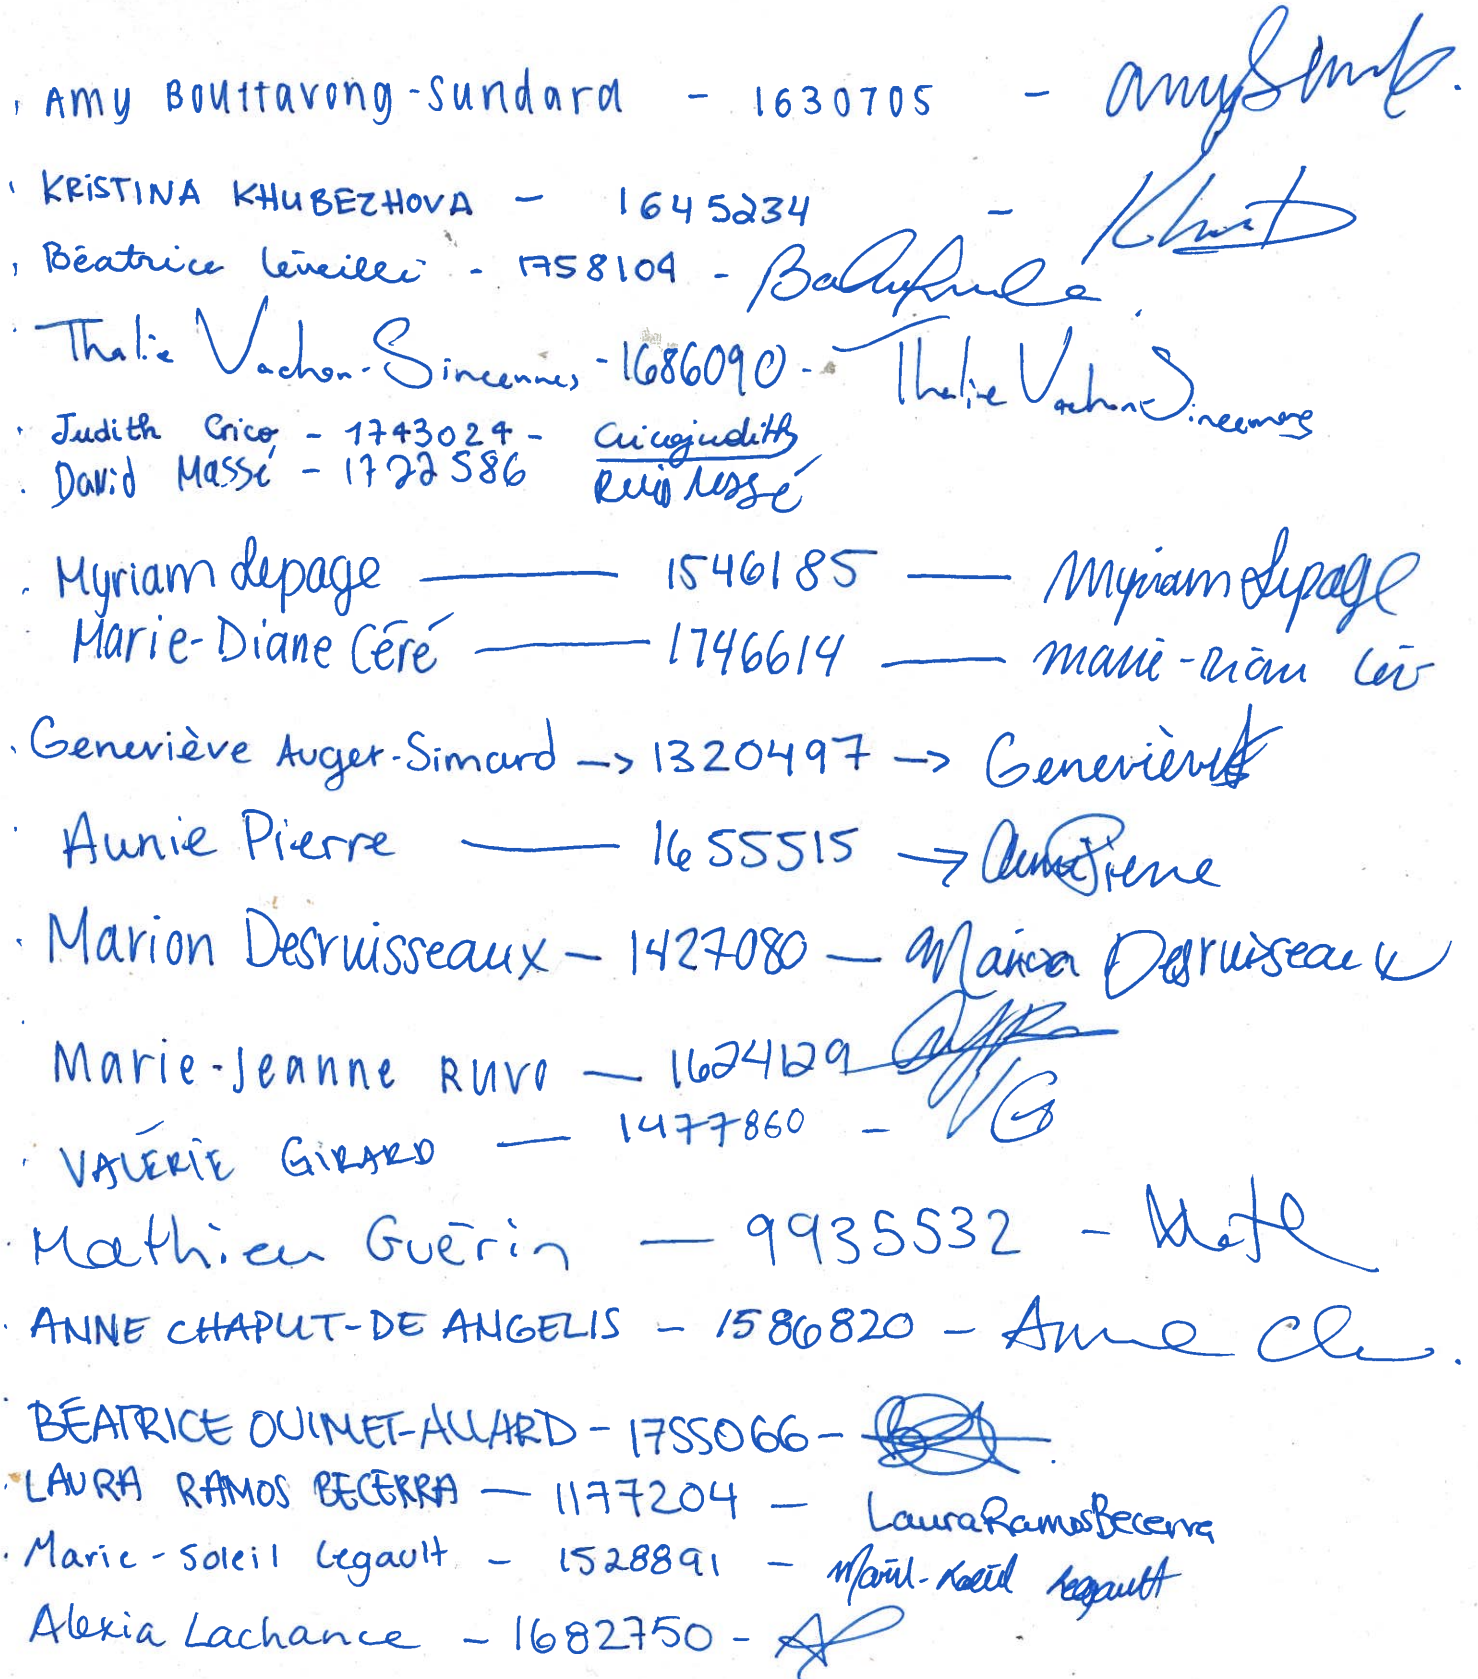 Amy Bouttavong-Sundara - 1630705 -
KRISTINA KHUBEZHOVA - 1645234 -
Béatrice Léveillé - 1758104 -
Thalie Vachon-Sincennes - 1686090 - Thalie Vachon-Sincennes
Judith Crico - 1743024 - Cricojudith
David Massé - 1722586 Massé
Myriam Lepage — 1546185 — Myriam Lepage
Marie-Diane Céré — 1746614 — Marie-Diane Céré
Geneviève Auger-Simard -> 1320497 -> Geneviève
Aunie Pierre — 1655515 -> Aunie Pierre
Marion Desruisseaux - 1427080 - Marion Desruisseaux
Marie-Jeanne RUVO - 1624129
VALÉRIE GIRARD — 1477860 - VG
Mathieu Guérin — 9935532 - Math
ANNE CHAPUT-DE ANGELIS - 1586820 - Anne Ch
BÉATRICE OUIMET-ALLARD - 1755066 -
LAURA RAMOS BECERRA - 1177204 - LauraRamosBecerra
Marie-Soleil Legault - 1528891 - Marie-Soleil Legault
Alexia Lachance - 1682750 -